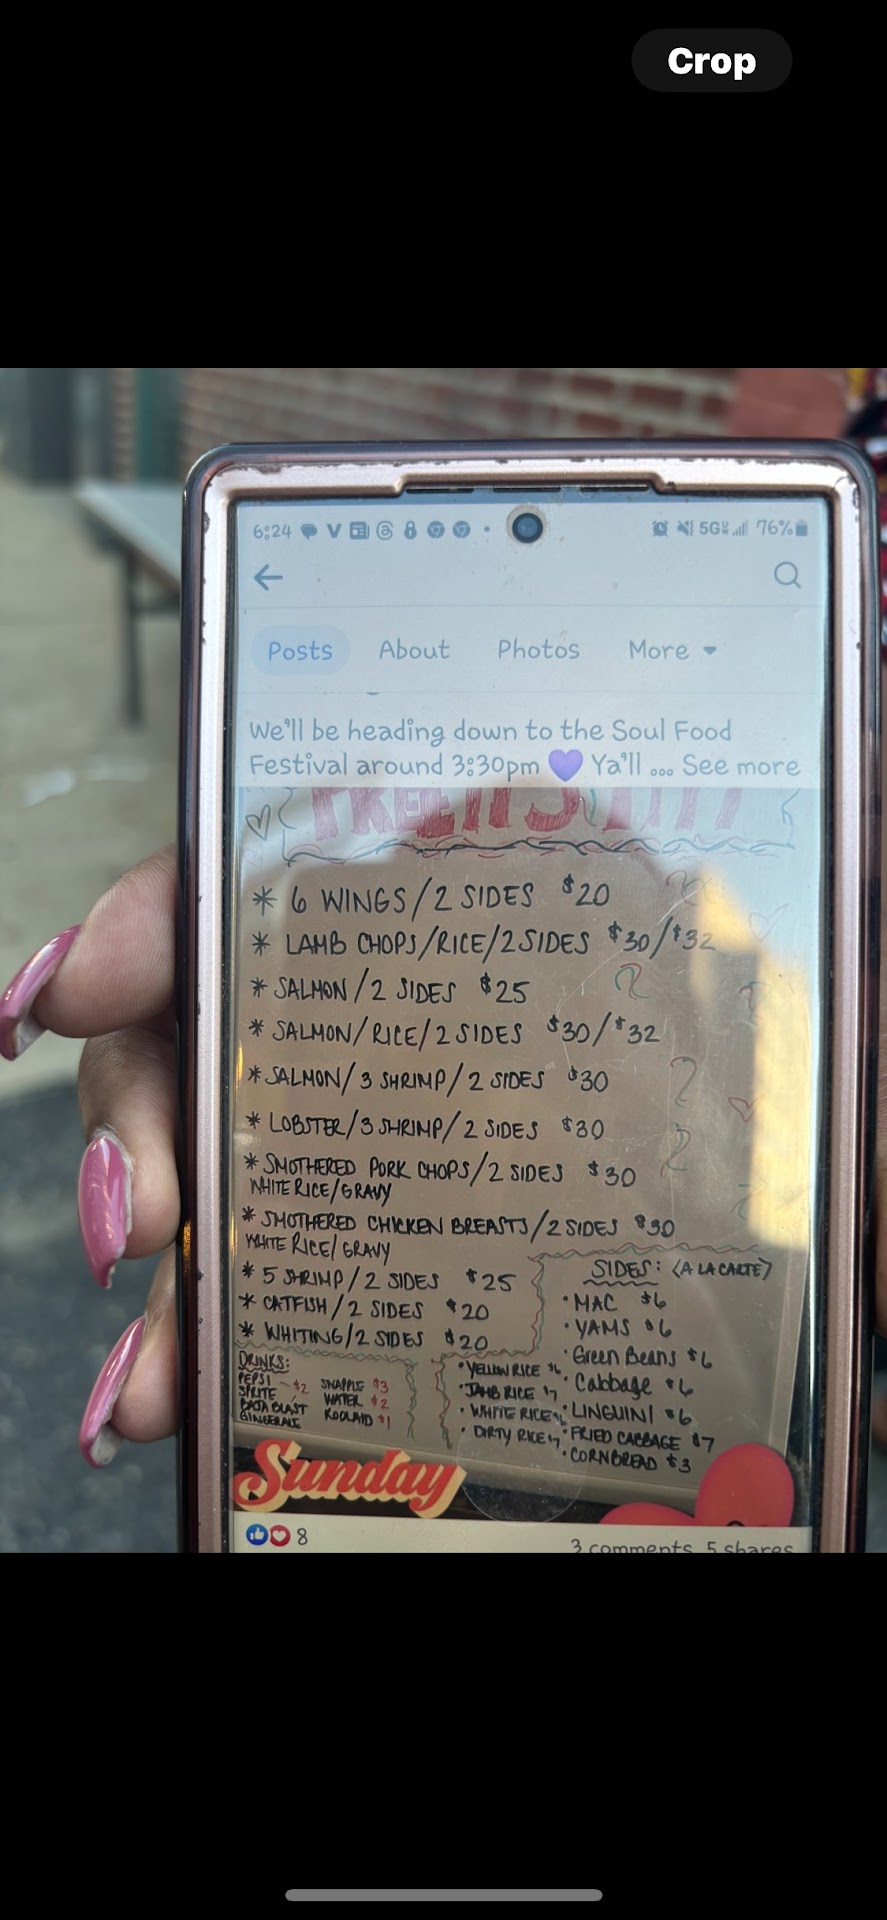 Crop
6:24
5G
76%
Posts
About
Photos
More
We'll be heading down to the Soul Food
Festival around 3:30pm 💜 Ya'll ... See more
* 6 WINGS/2 SIDES $20
* LAMB CHOPS/RICE/2 SIDES $30/$32
* SALMON/2 SIDES $25
* SALMON/RICE/2 SIDES $30/$32
* SALMON/3 SHRIMP/2 SIDES $30
* LOBSTER/3 SHRIMP/2 SIDES $30
* SMOTHERED PORK CHOPS/2 SIDES $30
WHITE RICE/GRAVY
* SMOTHERED CHICKEN BREASTS/2 SIDES $30
WHITE RICE/GRAVY
* 5 SHRIMP/2 SIDES $25
* CATFISH/2 SIDES $20
* WHITING/2 SIDES $20
DRINKS:
PEPSI
SPRITE - $2
BAJA BLAST
GINGERALE
SNAPPLE $3
WATER $2
KOOLAID $1
• YELLOW RICE $6
• JAMB RICE $7
• WHITE RICE $6
• DIRTY RICE $7
SIDES: (A LA CARTE)
• MAC $6
• YAMS $6
• Green Beans $6
• Cabbage $6
• LINGUINI $6
• FRIED CABBAGE $7
• CORNBREAD $3
Sunday
8
3 comments 5 shares